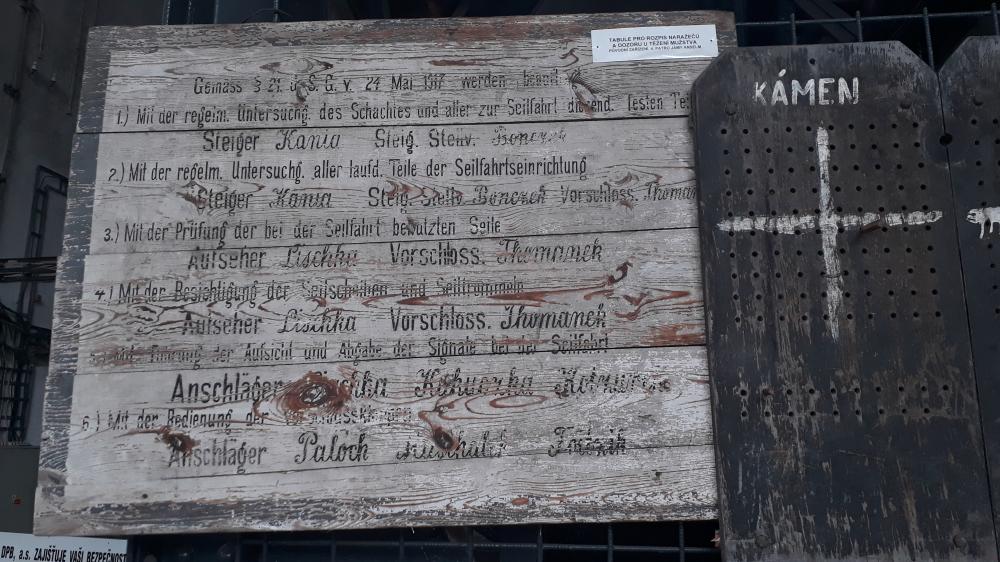 TABULE PRO ROZPIS NARAŽEČŮ
A DOZORU U TĚŽENÍ MUŽSTVA
PŮVODNÍ ZAŘÍZENÍ 4. PATRO JÁMY ANSELM
Gemäss § 21 d. S. G. v. 24 Mai 1917 werden
1.) Mit der regelm. Untersuchg. des Schachtes und aller zur Seilfahrt dienend. festen
Steiger Kania Steig. Stellv. Bonczek
2.) Mit der regelm. Untersuchg. aller laufd. Teile der Seilfahrtseinrichtung
Steiger Kania Steig. Stellv. Bonczek Vorschloss. Thoman
3.) Mit der Prüfung der bei der Seilfahrt benutzten Seile
Aufseher Lischka Vorschloss. Thomanek
4.) Mit der Besichtigung der Seilscheiben und Seiltrommeln
Aufseher Lischka Vorschloss. Thomanek
5.) Mit Führung der Aufsicht und Abgabe der Signale bei der Seilfahrt
Anschläger
6.) Mit der Bedienung der
Anschläger Paloch
KÁMEN
DPB, a.s. ZAJIŠŤUJE VAŠI BEZPEČNOST